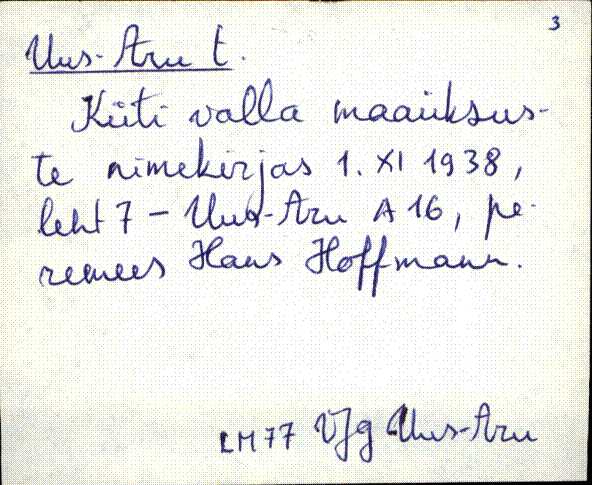 3
Uus-Aru t.
Küti valla maaüksus-
te nimekirjas 1. XI 1938,
leht 7 - Uus-Aru A 16, pe-
remees Hans Hoffmann.
LM77 VJg Uus-Aru